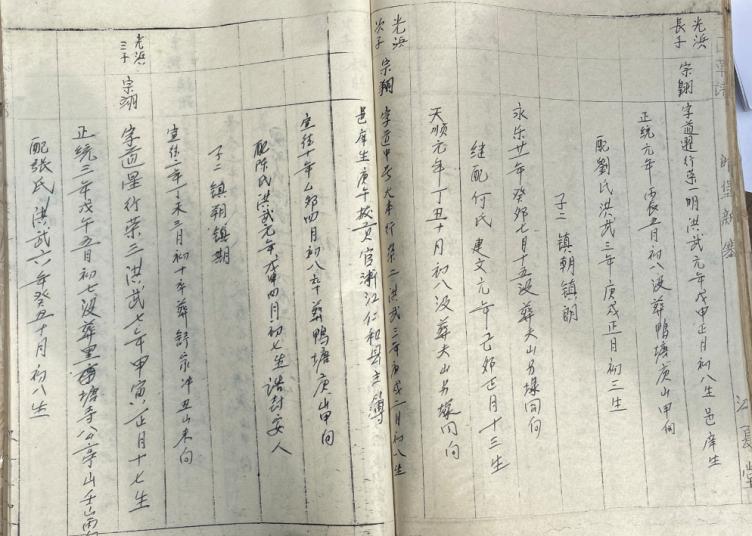 光浜長子 宗翺 字道 行荣一明洪武元年戊申正月初八生邑庠生
正統元年丙辰五月初八没葬鴨塘庚山甲向
配劉氏洪武三年庚戌正月初三生
子二 镇朝镇朗
永乐廿一年癸卯七月十五没葬大山 同向
继配何氏建文元年己卯正月十三生
天顺元年丁丑十月初八没葬大山 同向
光浜次子 宗翔 字道中号大本行荣二洪武三年庚戌二月初八生
邑庠生庚午授 官浙江仁和县主簿
宣德十年乙卯四月初八卒葬鴨塘庚山甲向
配陈氏洪武元年戊申四月初七生诰封安人
子二镇朝镇期
宣德二年丁未三月初十卒葬舒家冲丑山未向
光浜三子 宗翊 字道星行荣三洪武七年甲寅正月十七生
正统三年戊午五月初七没葬里 塘寺公亭山壬山
配張氏洪武六年癸丑十月初八生
江夏堂